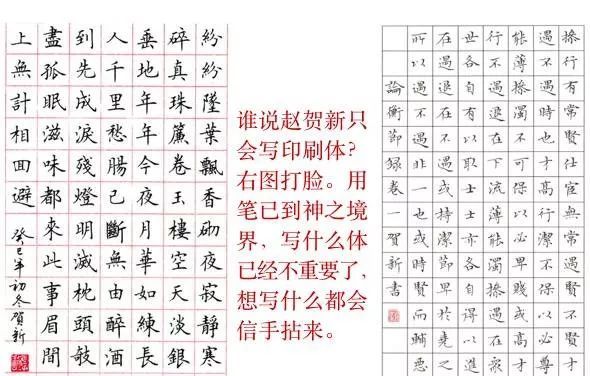 紛紛墜葉飄香砌夜寂靜寒
碎真珠簾卷玉樓空天淡銀
垂地年年今夜月華如練長
人千里愁腸已斷無由醉酒
到先成淚殘燈明滅枕頭敧
盡孤眠滋味都來此事眉間
上無計相回避
癸巳年初冬賀新
谁说赵贺新只
会写印刷体？
右图打脸。用
笔已到神之境
界，写什么体
已经不重要了，
想写什么都会
信手拈来。
操行有常賢仕宦無常遇賢不賢才
遇不遇時也才高行潔不可保以必尊
能薄操濁不可保以必卑賤或高才
行不遇退在下流薄能濁操遇在眾
世各自有以取士士亦各自得以進
在遇退在不遇或持節早賢於堯之
所以遇不遇非一也或時賢而輔惡
論衡節錄卷一賀新書